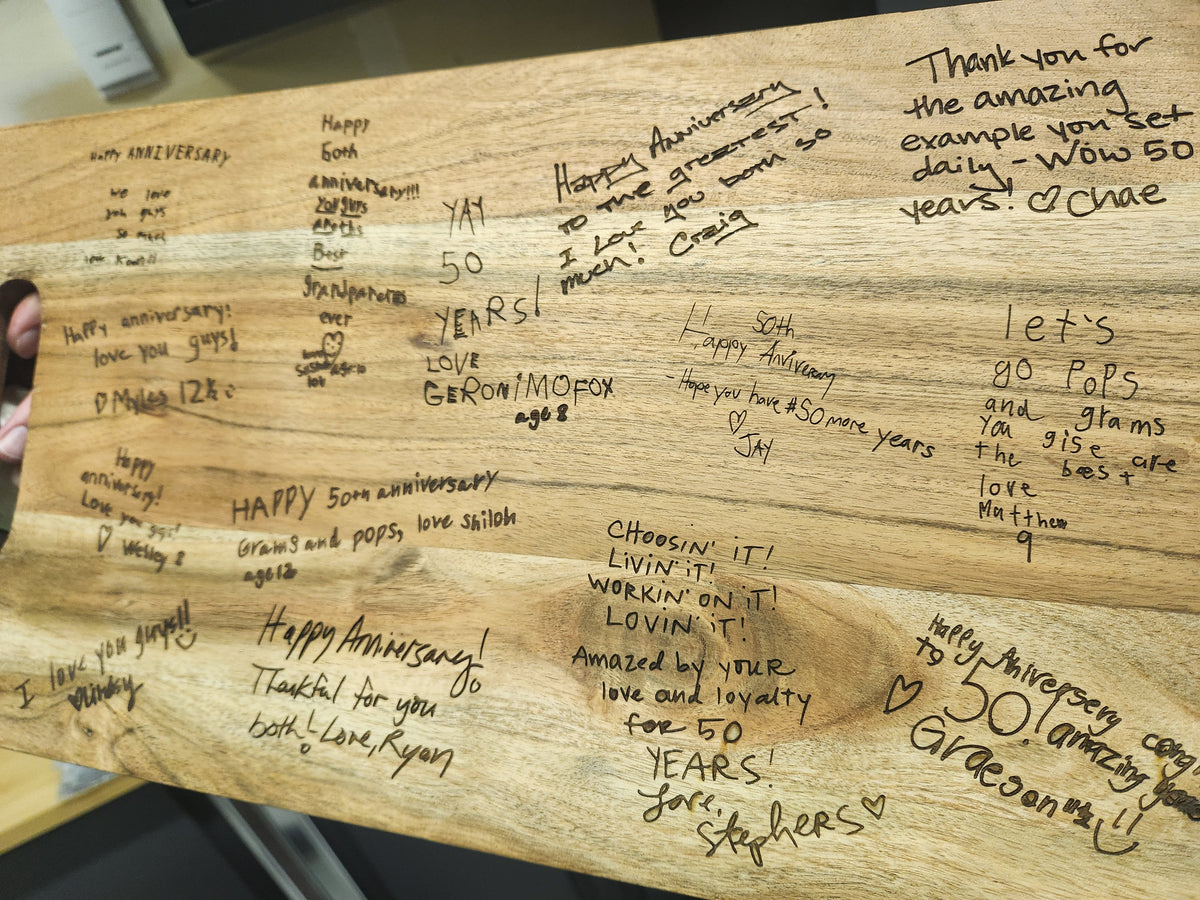 Happy ANNIVERSARY
we love
you guys
so much
love
Happy
60th
anniversary!!!
You guys
are the
Best
Grandparents
ever
love
YAY
50
YEARS!
LOVE
GERONIMO FOX
age 8
Happy Anniversary
TO THE greatest!
I Love you both so
much! Craig
Thank you for
the amazing
example you set
daily - Wow 50
years! ♡ Chae
Happy anniversary!
love you guys!
♡ Myles 12½ :)
50th
Happy Aniversary
- Hope you have #50 more years
♡
JAY
let's
go PoPS
and grams
you gise are
the best
love
Matthew
9
Happy
anniversary!
Love you guys!
♡ Wesley 8
HAPPY 50th anniversary
Grams and pops, love Shiloh
age 12
I love you guys!! :)
♡ Lindsy
Happy Anniversary!
Thankful for you
both! Love, Ryan
CHOOSIN' iT!
LIVIN' iT!
WORKIN' ON iT!
LOVIN' iT!
Amazed by your
love and loyalty
for 50
YEARS!
Love,
Stephers ♡
Happy Aniversery
to
♡ 50! amazing
Graeson